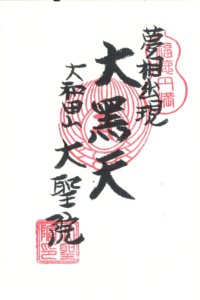 夢相出現
大黑天
大和田山
大聖院
福寿円満